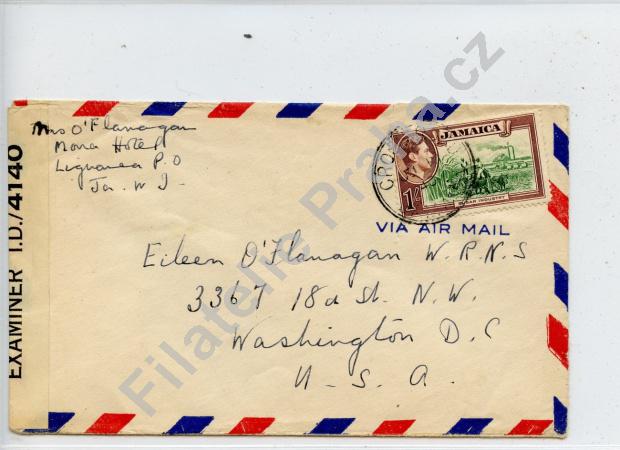 Mrs O'Flanagan
Mona Hotel
Liguanea P.O
Ja. W I.
EXAMINER I.D./4140
JAMAICA
1/-
SUGAR INDUSTRY
CRO
VIA AIR MAIL
Eileen O'Flanagan W.R.N.S
3367 18d St. N.W.
Washington D.C
U.S.A.
Filatelie Praha.cz